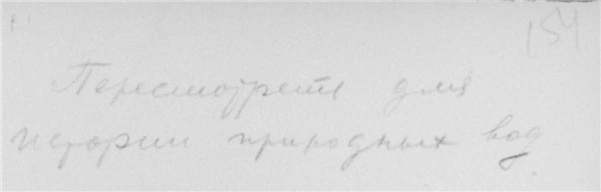 154
Пересмотреть для
истории природных вод